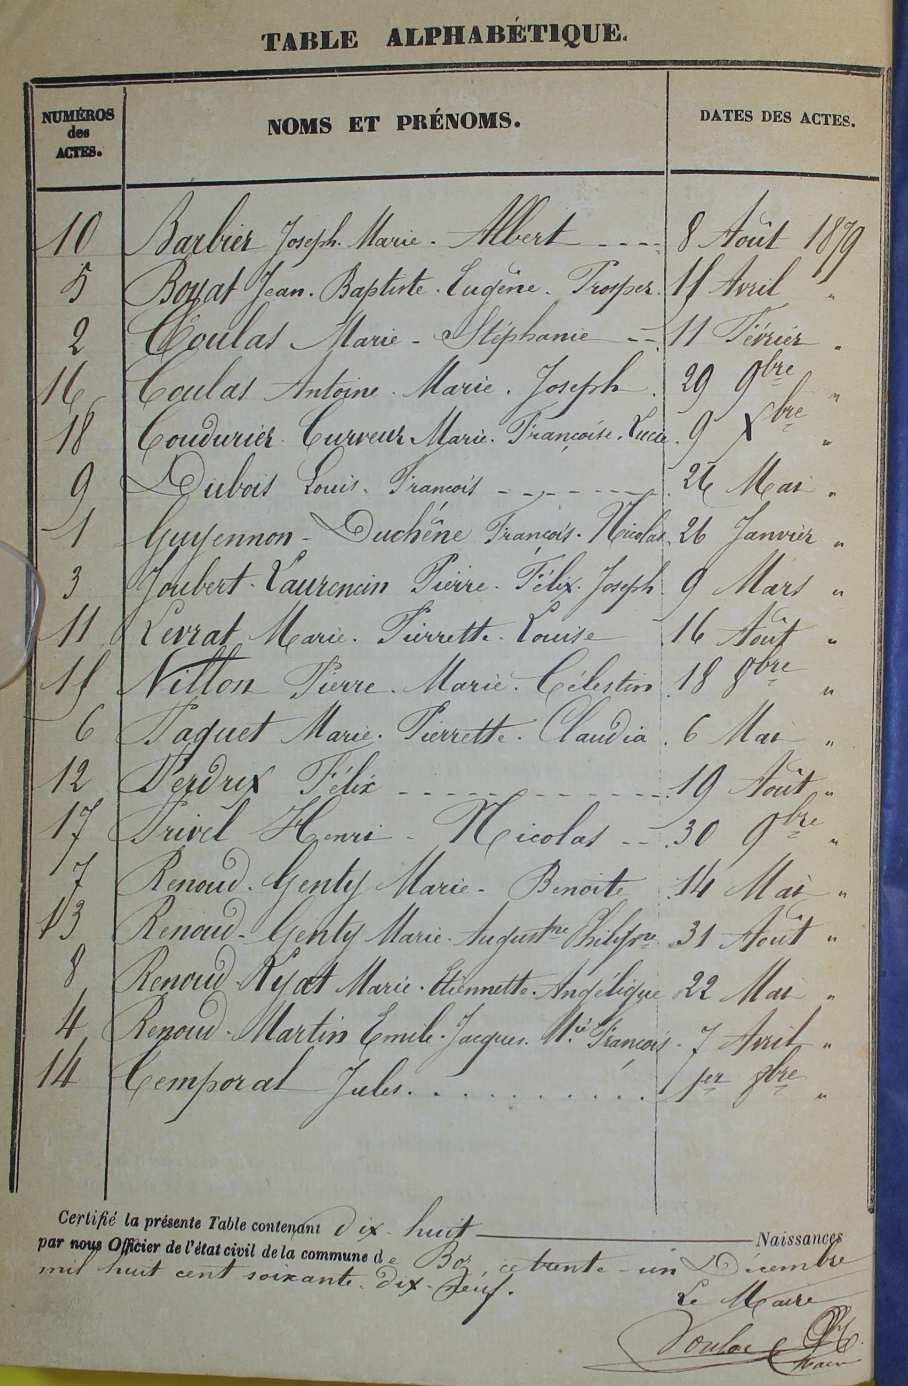 TABLE ALPHABÉTIQUE.
NUMÉROS des ACTES. NOMS ET PRÉNOMS. DATES DES ACTES.
10 Barbier Joseph. Marie. Albert ---- 8 Août 1879
5 Boyat Jean. Baptiste. Eugêne. Prosper. 15 Avril "
2 Coulas Marie - Stéphanie --. 11 Février "
16 Coulas Antoine. Marie. Joseph. 29 9bre "
18 Coudurier Curveur Marie. Françoise. Lucie. 9 Xbre "
9 Dubois Louis. François ------- 26 Mai "
1 Guyennon - Duchêne François. Nicolas. 26 Janvier "
3 Joubert. Laurencin Pierre. Félix. Joseph. 9 Mars "
11 Levrat Marie. Pierrette. Louise 16 Août "
15 Nitton Pierre. Marie. Célestin. 18 8bre "
6 Paquet Marie. Pierrette. Claudia. 6 Mai "
12 Perdrix Félix ------------ 19 Août "
17 Privel Henri - Nicolas --. 30 9bre "
7 Renoud. Genty Marie - Benoite 14 Mai "
13 Renoud - Genty Marie. Augustne Philipne 31 Août "
8 Renoud Lyat Marie. Etiennette. Angélique 22 Mai "
4 Renoud. Martin Emile. Jacques. Mie François. 7 Avril "
14 Temporal Jules........... 1er 8bre "
Certifié la présente Table contenant dix-huit Naissances
par nous Officier de l'état civil de la commune de Boz, ce trente-un Décembre
mil huit cent soixante-dix-neuf.
Le Maire